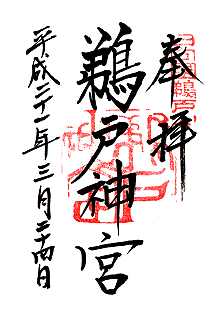 奉拝
鵜戸神宮
平成二十一年三月二十四日